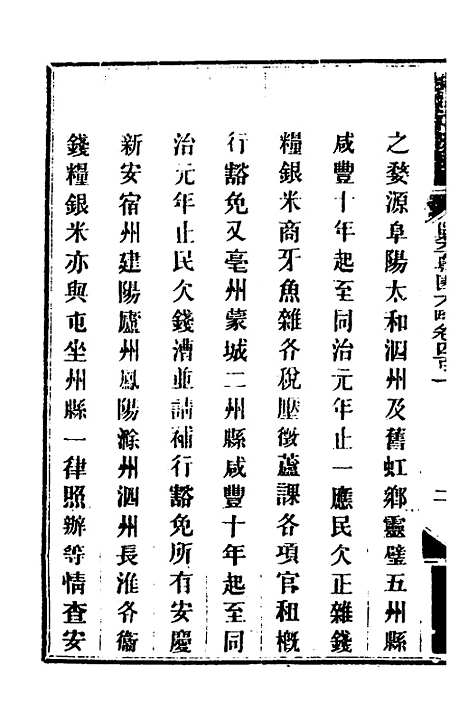 之婺源阜陽太和泗州及舊虹鄉靈璧五州縣
咸豐十年起至同治元年止一應民欠正雜錢
糧銀米商牙魚雜各稅壓徵蘆課各項官租概
行豁免又亳州蒙城二州縣咸豐十年起至同
治元年止民欠錢漕並請補行豁免所有安慶
新安宿州建陽廬州鳳陽滁州泗州長淮各衞
錢糧銀米亦與屯坐州縣一律照辦等情查安
二